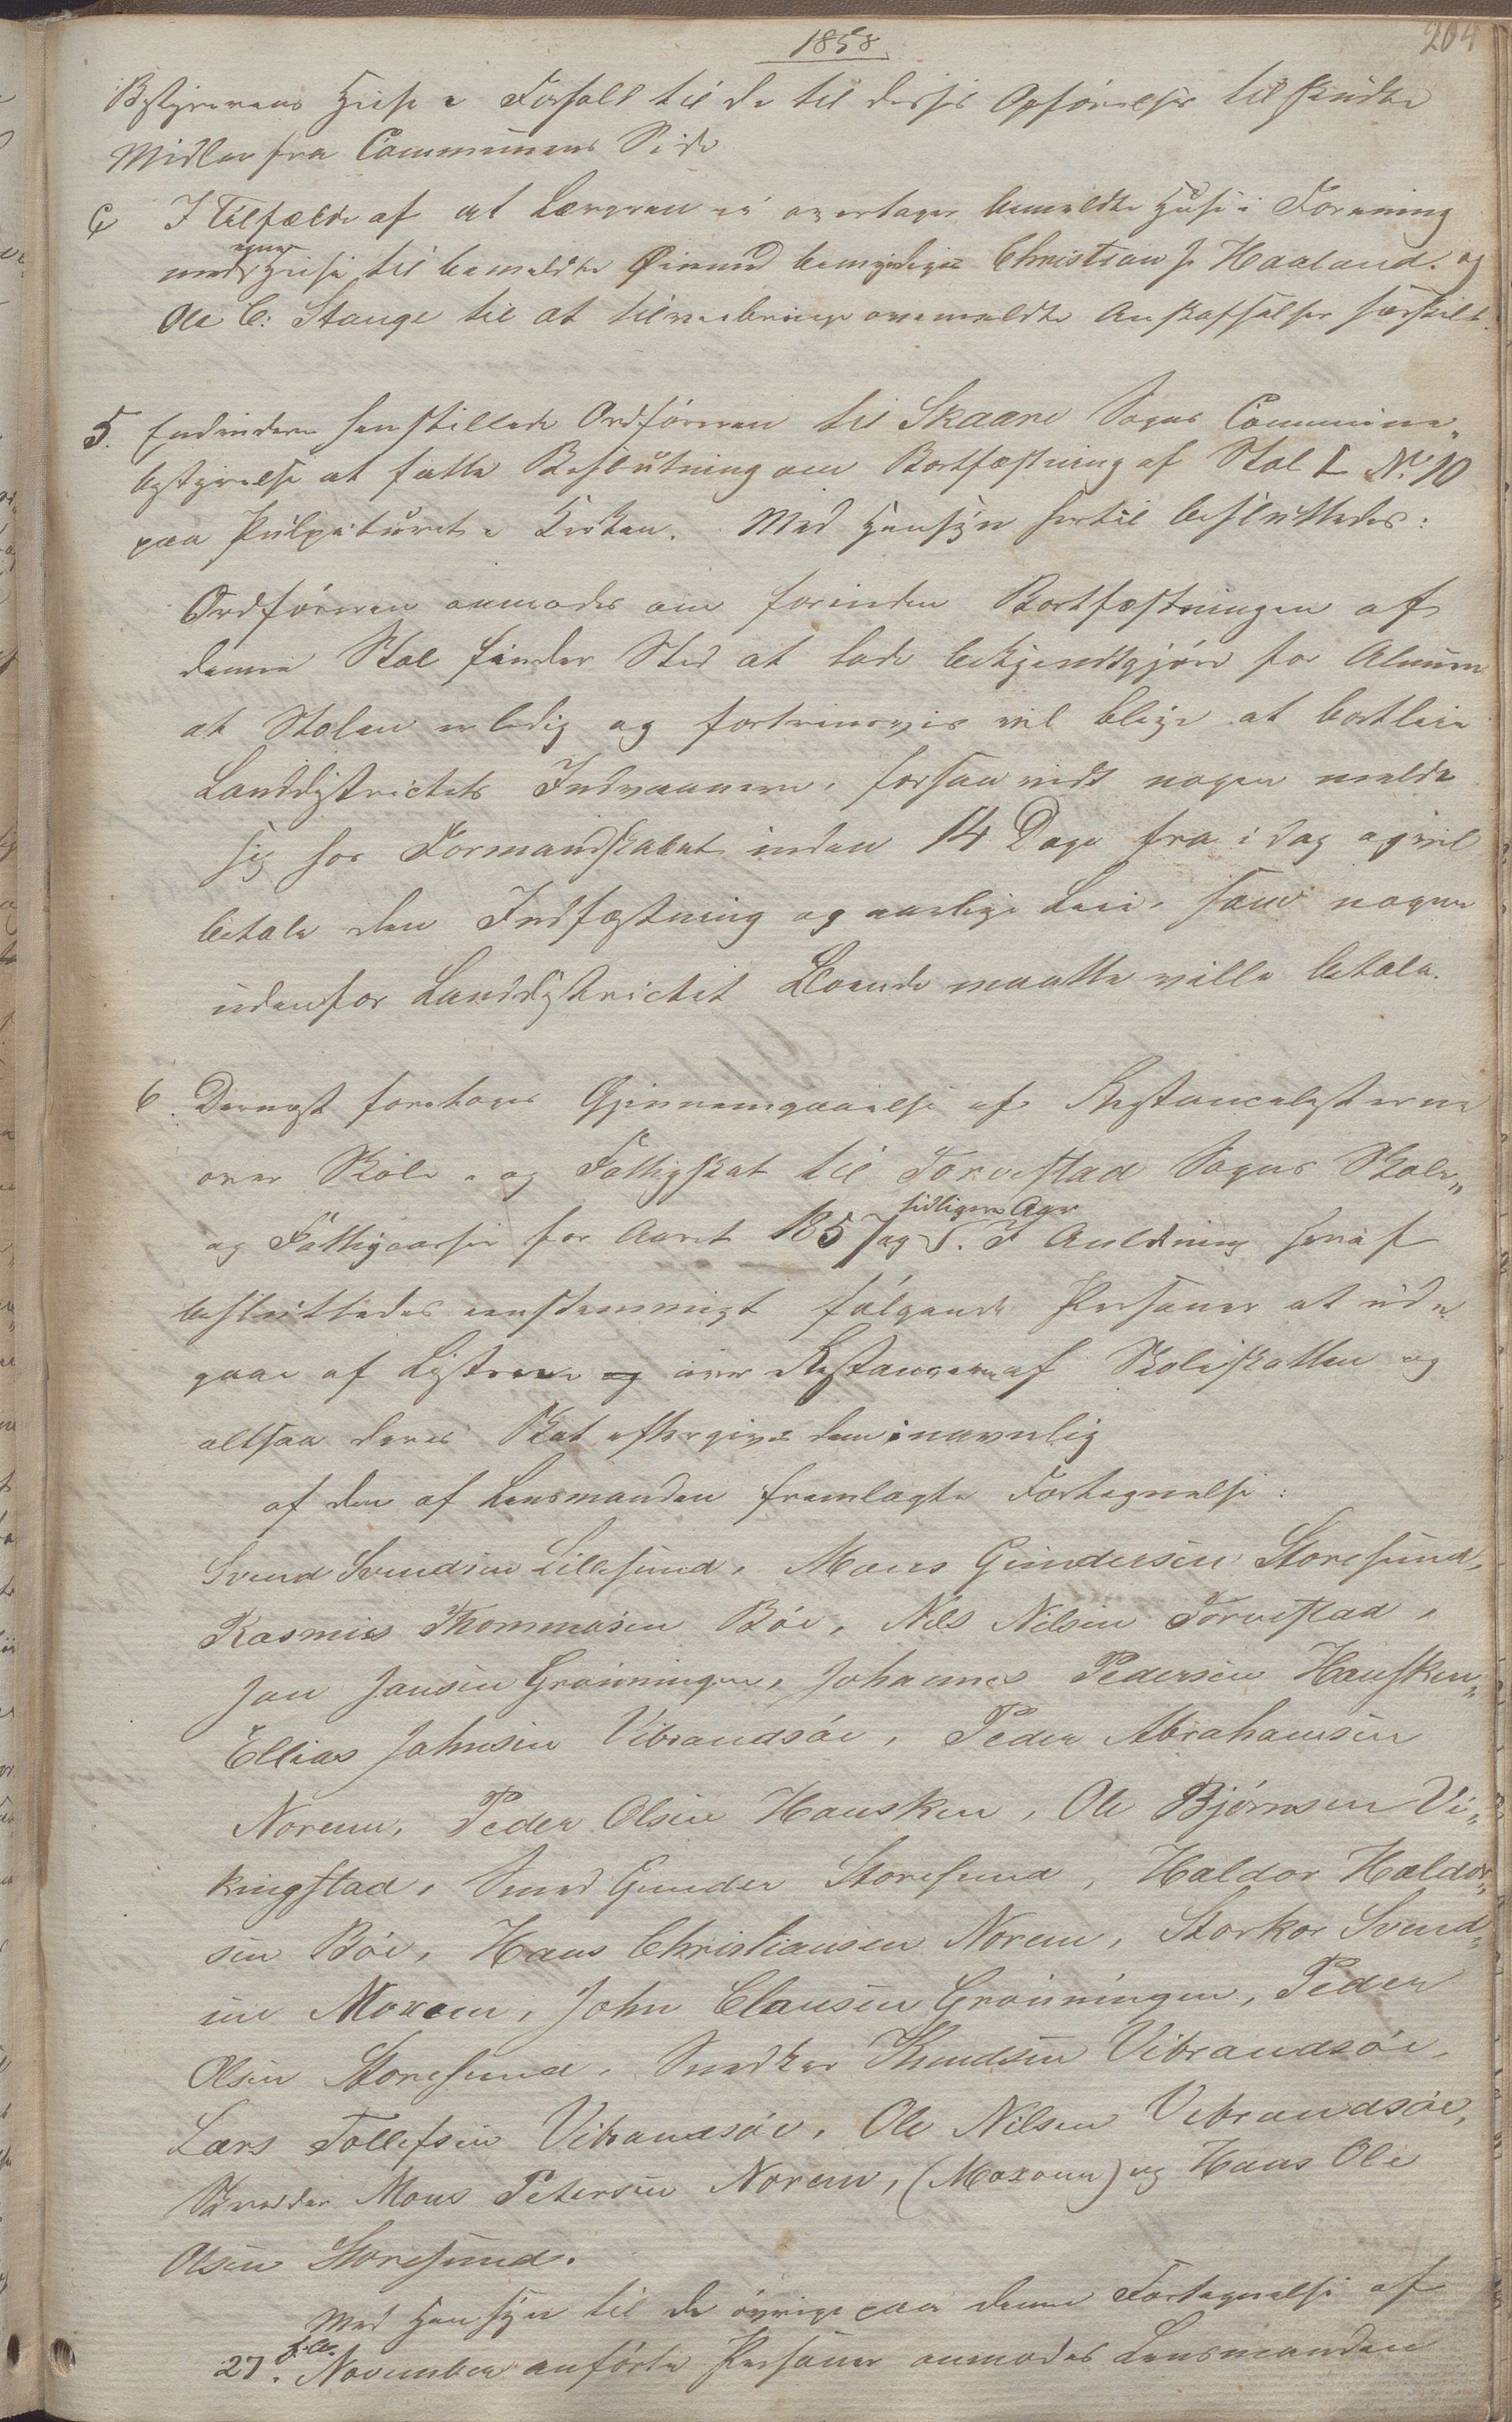 1858.
204
Bestyrerens Huse i Forhold til de til disses Opförelse tilskudte
Midler fra Communens Side
C I Tilfælde af at Læreren ei overtager bemeldte Huse i Forening
med egne Huse til bemeldte Öiemed bemyndiges Christian J. Haaland. og
Ole C. Stange til at tilveiebringe ovenmeldte Anskaffelser særskilt.
5. Endvidere henstillede Ordföreren til Skaare Sogns Commune„
bestyrelse at fatte Beslutning om Bortfæstning af Stol L No 10
paa Pulpituret i Kirken. Med Hensyn hertil besluttedes:
Ordföreren anmodes om forinden Bortfæstningen af
denne Stol finder Sted at lade bekjendtgjöre for Almuen
at Stolen er ledig og fortrinsvis vil blive at bortleie
Landdistrictets Indvaanere, forsaavidt nogen melde
sig hos Formandskabet inden 14 Dage fra idag og vil
betale den Indfæstning og aarlige Leie, som nogen
udenfor Landdistrictet Boende maatte ville betale.
6. Dernæst foretoges Gjennemgaaelse af Restancelisterne
over Skole- og Fattigskat til Torvestad Sogns Skole„
og Fattigcasse for Aaret 1857 og tidligere Aar. I Anledning heraf
besluttedes eenstemmigt fölgende Personer at ud„
gaae af Listerne og over Restancerne af Skoleskatten og
altsaa deres Skat eftergives dem navnlig
af den af Lensmanden fremlagte Fortegnelse:
Svend Svendsen Lillesund, Mons Gundersen Storesund,
Rasmus Thommasen Böe, Nils Nilsen Torvestad,
Jon Jonsen Grönningen, Johannes Pedersen Hausken„
Ellias Johnsen Vibrandsöe, Peder Abrahamsen
Norem, Peder Olsen Hausken, Ole Björnsen Vi„
kingstad, Smed Gunder Storesund, Haldor Haldor„
sen Böe, Hans Christiansen Norem, Storkor Svend„
sen Moxem, John Clausen Grönningen, Peder
Olsen Storesund, Snedker Knudsen Vibrandsöe,
Lars Tollefsen Vibrandsöe, Ole Nilsen Vibrandsöe,
Skrædder Mons Petersen Norem, (Moxoum) og Hans Ole
Olsen Storesund.
Med Hensyn til de övrige paa denne Fortegnelse af
27. f. A. November anförte Personer anmodes Lensmanden